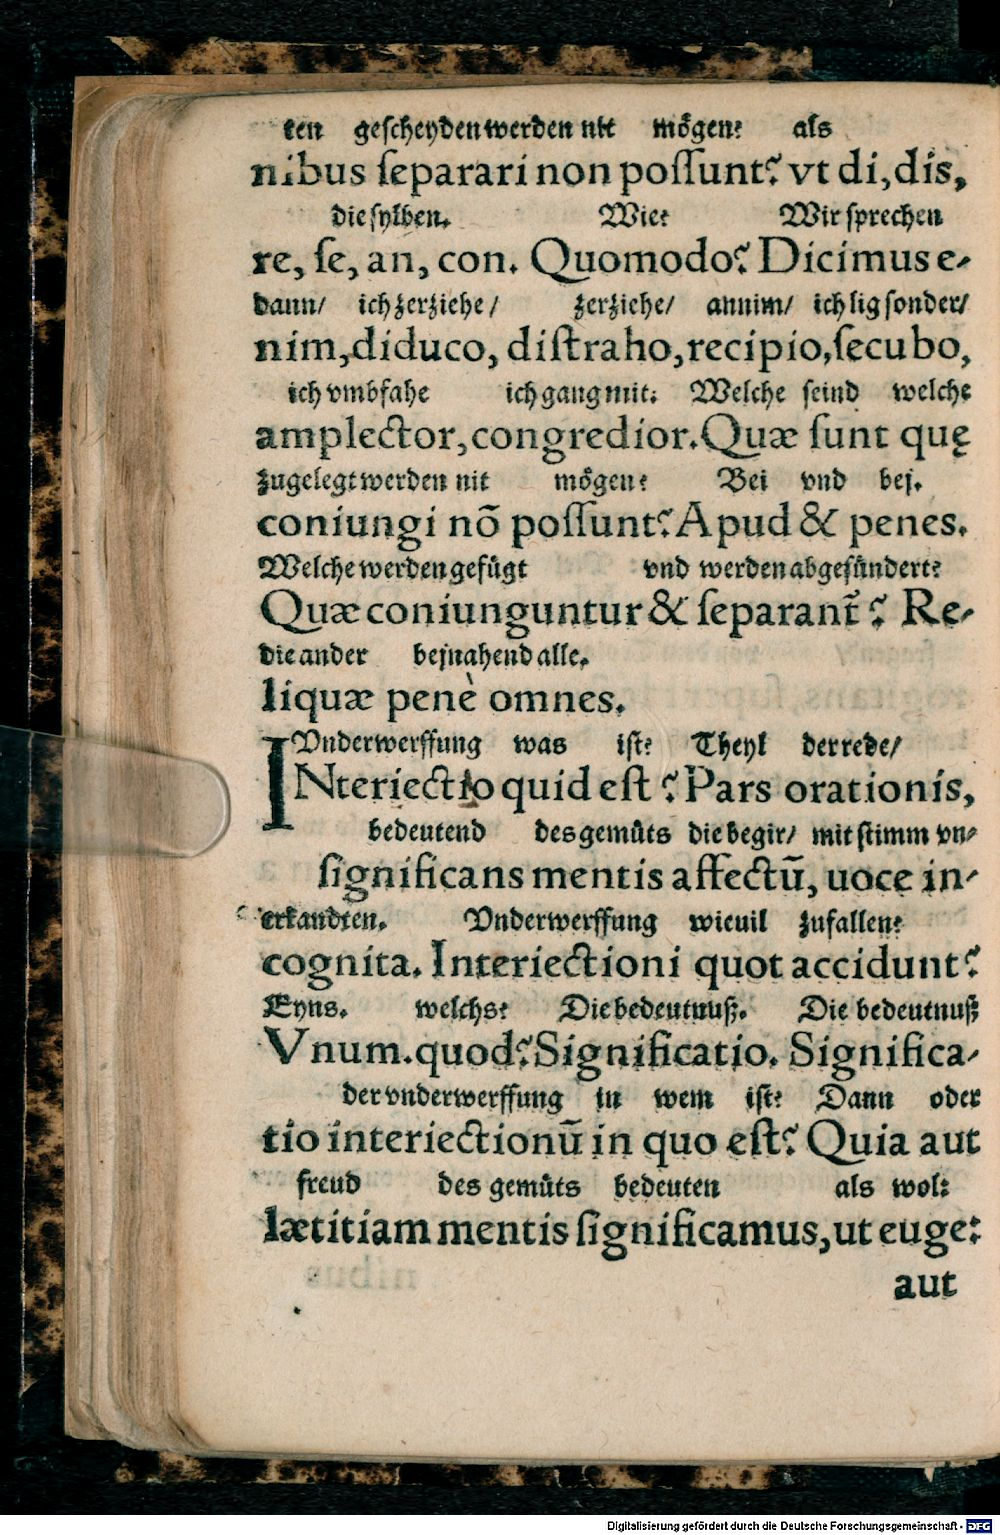 ten gescheyden werden nit mögen? als
nibus ſeparari non poſſunt? vt di, dis,
die sylben. Wie? Wir sprechen
re, ſe, an, con. Quomodo? Dicimus e-
dann/ ich zerziehe/ zerziehe/ annim/ ich lig sonder/
nim, diduco, diſtraho, recipio, ſecubo,
ich vmbfahe ich gang mit. Welche seind welche
amplector, congredior. Quæ ſunt quę
zugelegt werden nit mögen? Bei vnd bej.
coniungi nõ poſſunt? Apud & penes.
Welche werden gefügt vnd werden abgesündert?
Quæ coniunguntur & ſeparant̃? Re-
die ander bejnahend alle.
liquæ penè omnes.
Vnderwerffung was ist? Theyl der rede/
INteriectio quid eſt? Pars orationis,
bedeutend des gemůts die begir/ mit stimm vn-
ſignificans mentis affectū, uoce in-
erkandten. Vnderwerffung wieuil zufallen?
cognita. Interiectioni quot accidunt?
Eyns. welchs? Die bedeutnuß. Die bedeutnuß
Vnum. quod? Significatio. Significa-
der vnderwerffung in wem ist? Dann oder
tio interiectionū in quo eſt? Quia aut
freud des gemůts bedeuten als wol:
lætitiam mentis ſignificamus, ut euge:
aut
Digitalisierung gefördert durch die Deutsche Forschungsgemeinschaft - DFG